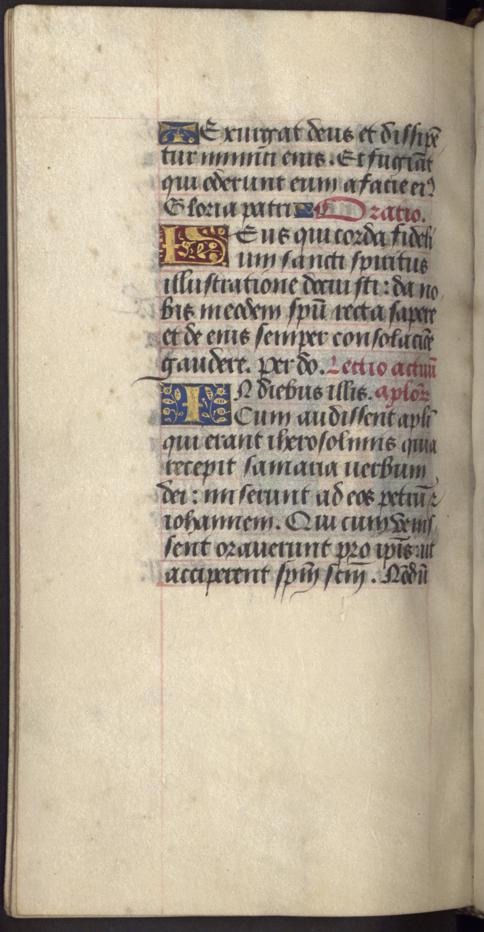 Exurgat deus et dissipē
tur inimici eius. Et fugiāt
qui oderunt eum a facie ei9
Gloria patri Oratio.
DEus qui corda fideli
um sancti spiritus
illustratione docuisti: da no
bis in eodem spū recta sapere
et de eius semper consolatiōe
gaudere. per do. Lectio actuū
IN diebus illis. aplor
Cum audissent apli
qui erant iherosolimis quia
recepit samaria uerbum
dei: miserunt ad eos petrū z
iohannem. Qui cum venis
sent orauerunt pro ipīs: ut
acciperent spm scm. Nōdū